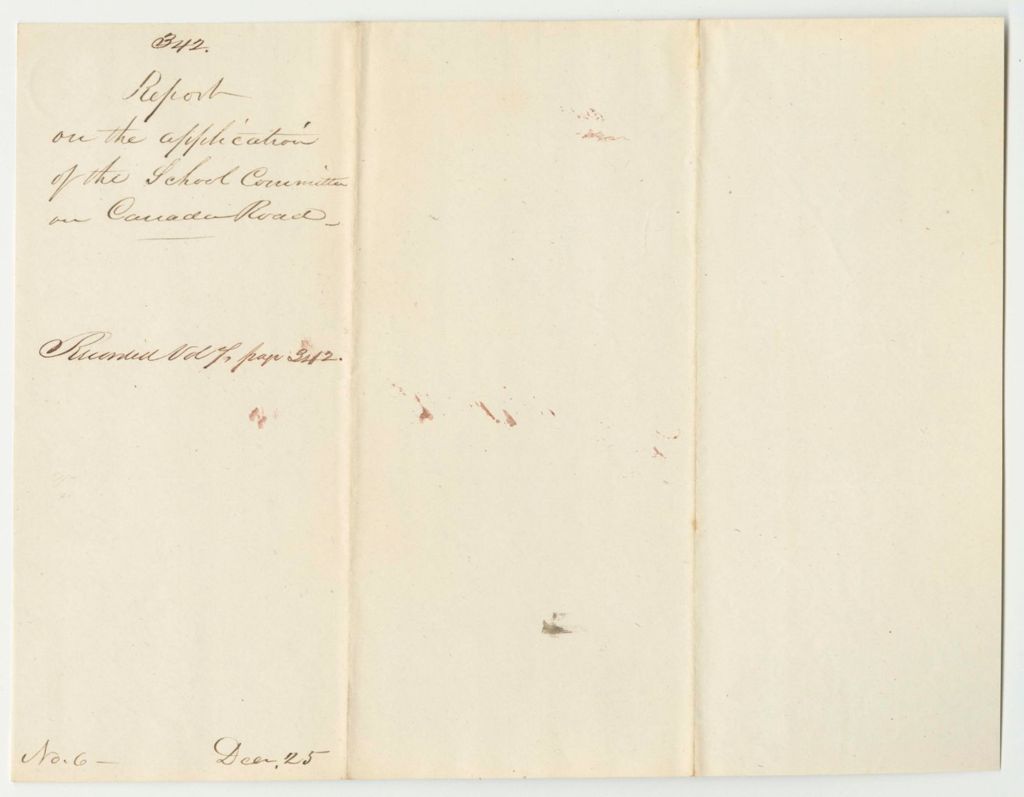 342.
Report
on the application
of the School Committee
on Canada Road_
Recorded Vol 7, page 342.
No. 6 - Decr. 25